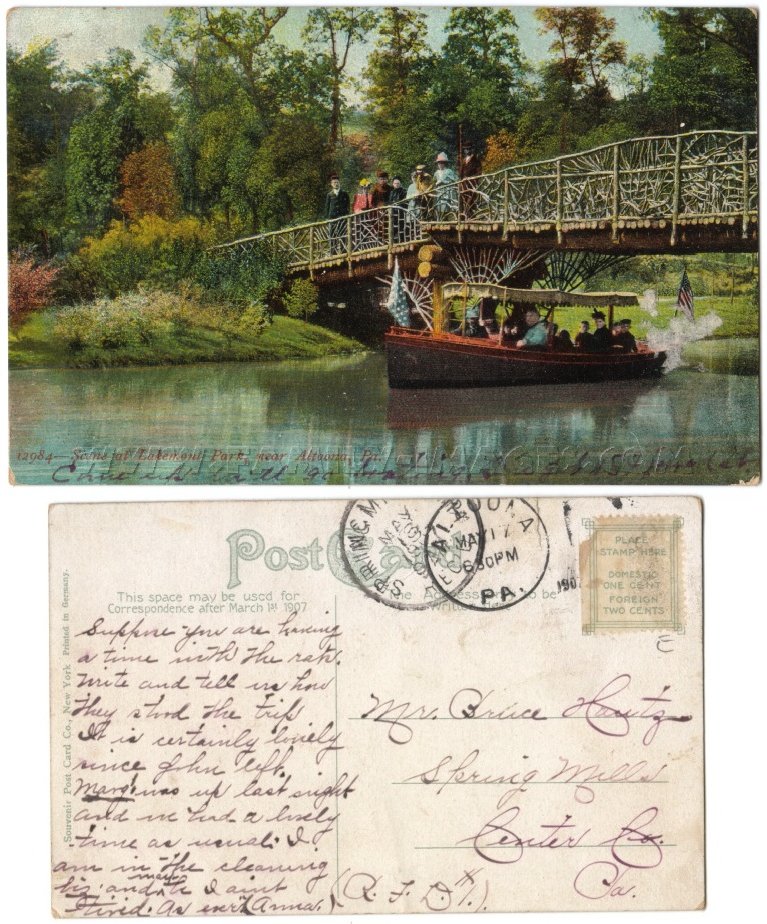 12984—Scene at Lakemont Park, near Altoona, Pa.
Post Card
This space may be used for
Correspondence after March 1st 1907
the Address to be
SPRING M
MAY
ALTOONA
MAY 17
630PM
PA.
190
REC
PLACE
STAMP HERE
DOMESTIC
ONE CENT
FOREIGN
TWO CENTS
E
Souvenir Post Card Co., New York Printed in Germany.
Suppose you are having
a time with the rats.
Write and tell us how
they stood the trip
It is certainly lonely
since John left.
Marg. was up last night
and we had a lively
time as usual. I
am in the cleaning
biz. and maybe I aint
tired. As ever Anna.
Mr. Bruce Hautz
Spring Mills
Center Co.
Pa.
(R. F. D. #1.)